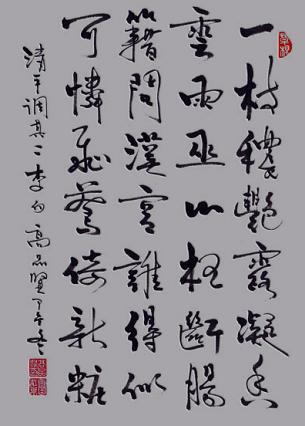 一枝穠艷露凝香
雲雨巫山枉斷腸
籍問漢宮誰得似
可憐飛燕倚新粧
清平调其二李白高品賢